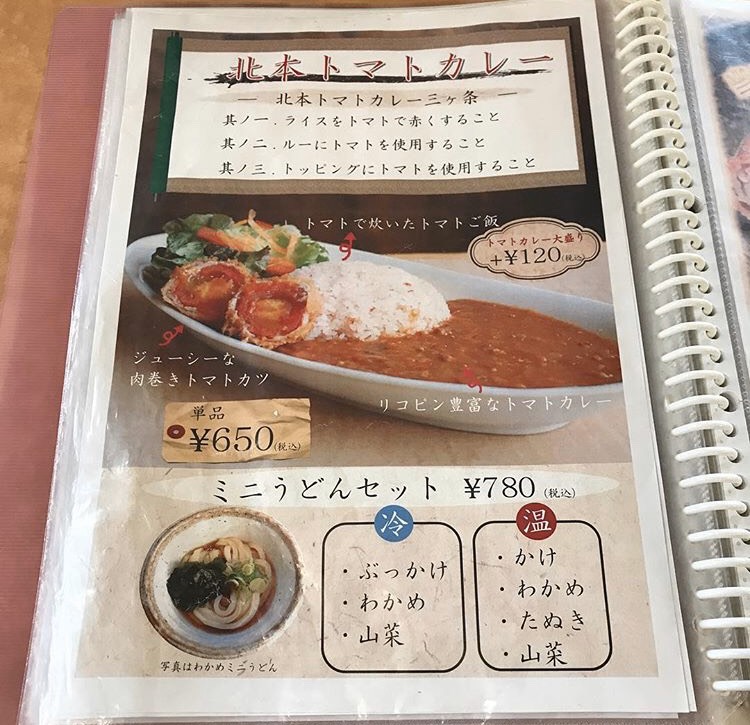 北本トマトカレー
― 北本トマトカレー三ヶ条 ―
其ノ一.ライスをトマトで赤くすること
其ノ二.ルーにトマトを使用すること
其ノ三.トッピングにトマトを使用すること
トマトで炊いたトマトご飯
トマトカレー大盛り
+¥120(税込)
ジューシーな
肉巻きトマトカツ
リコピン豊富なトマトカレー
単品
¥650(税込)
ミニうどんセット ¥780(税込)
冷
・ぶっかけ
・わかめ
・山菜
温
・かけ
・わかめ
・たぬき
・山菜
写真はわかめミニうどん